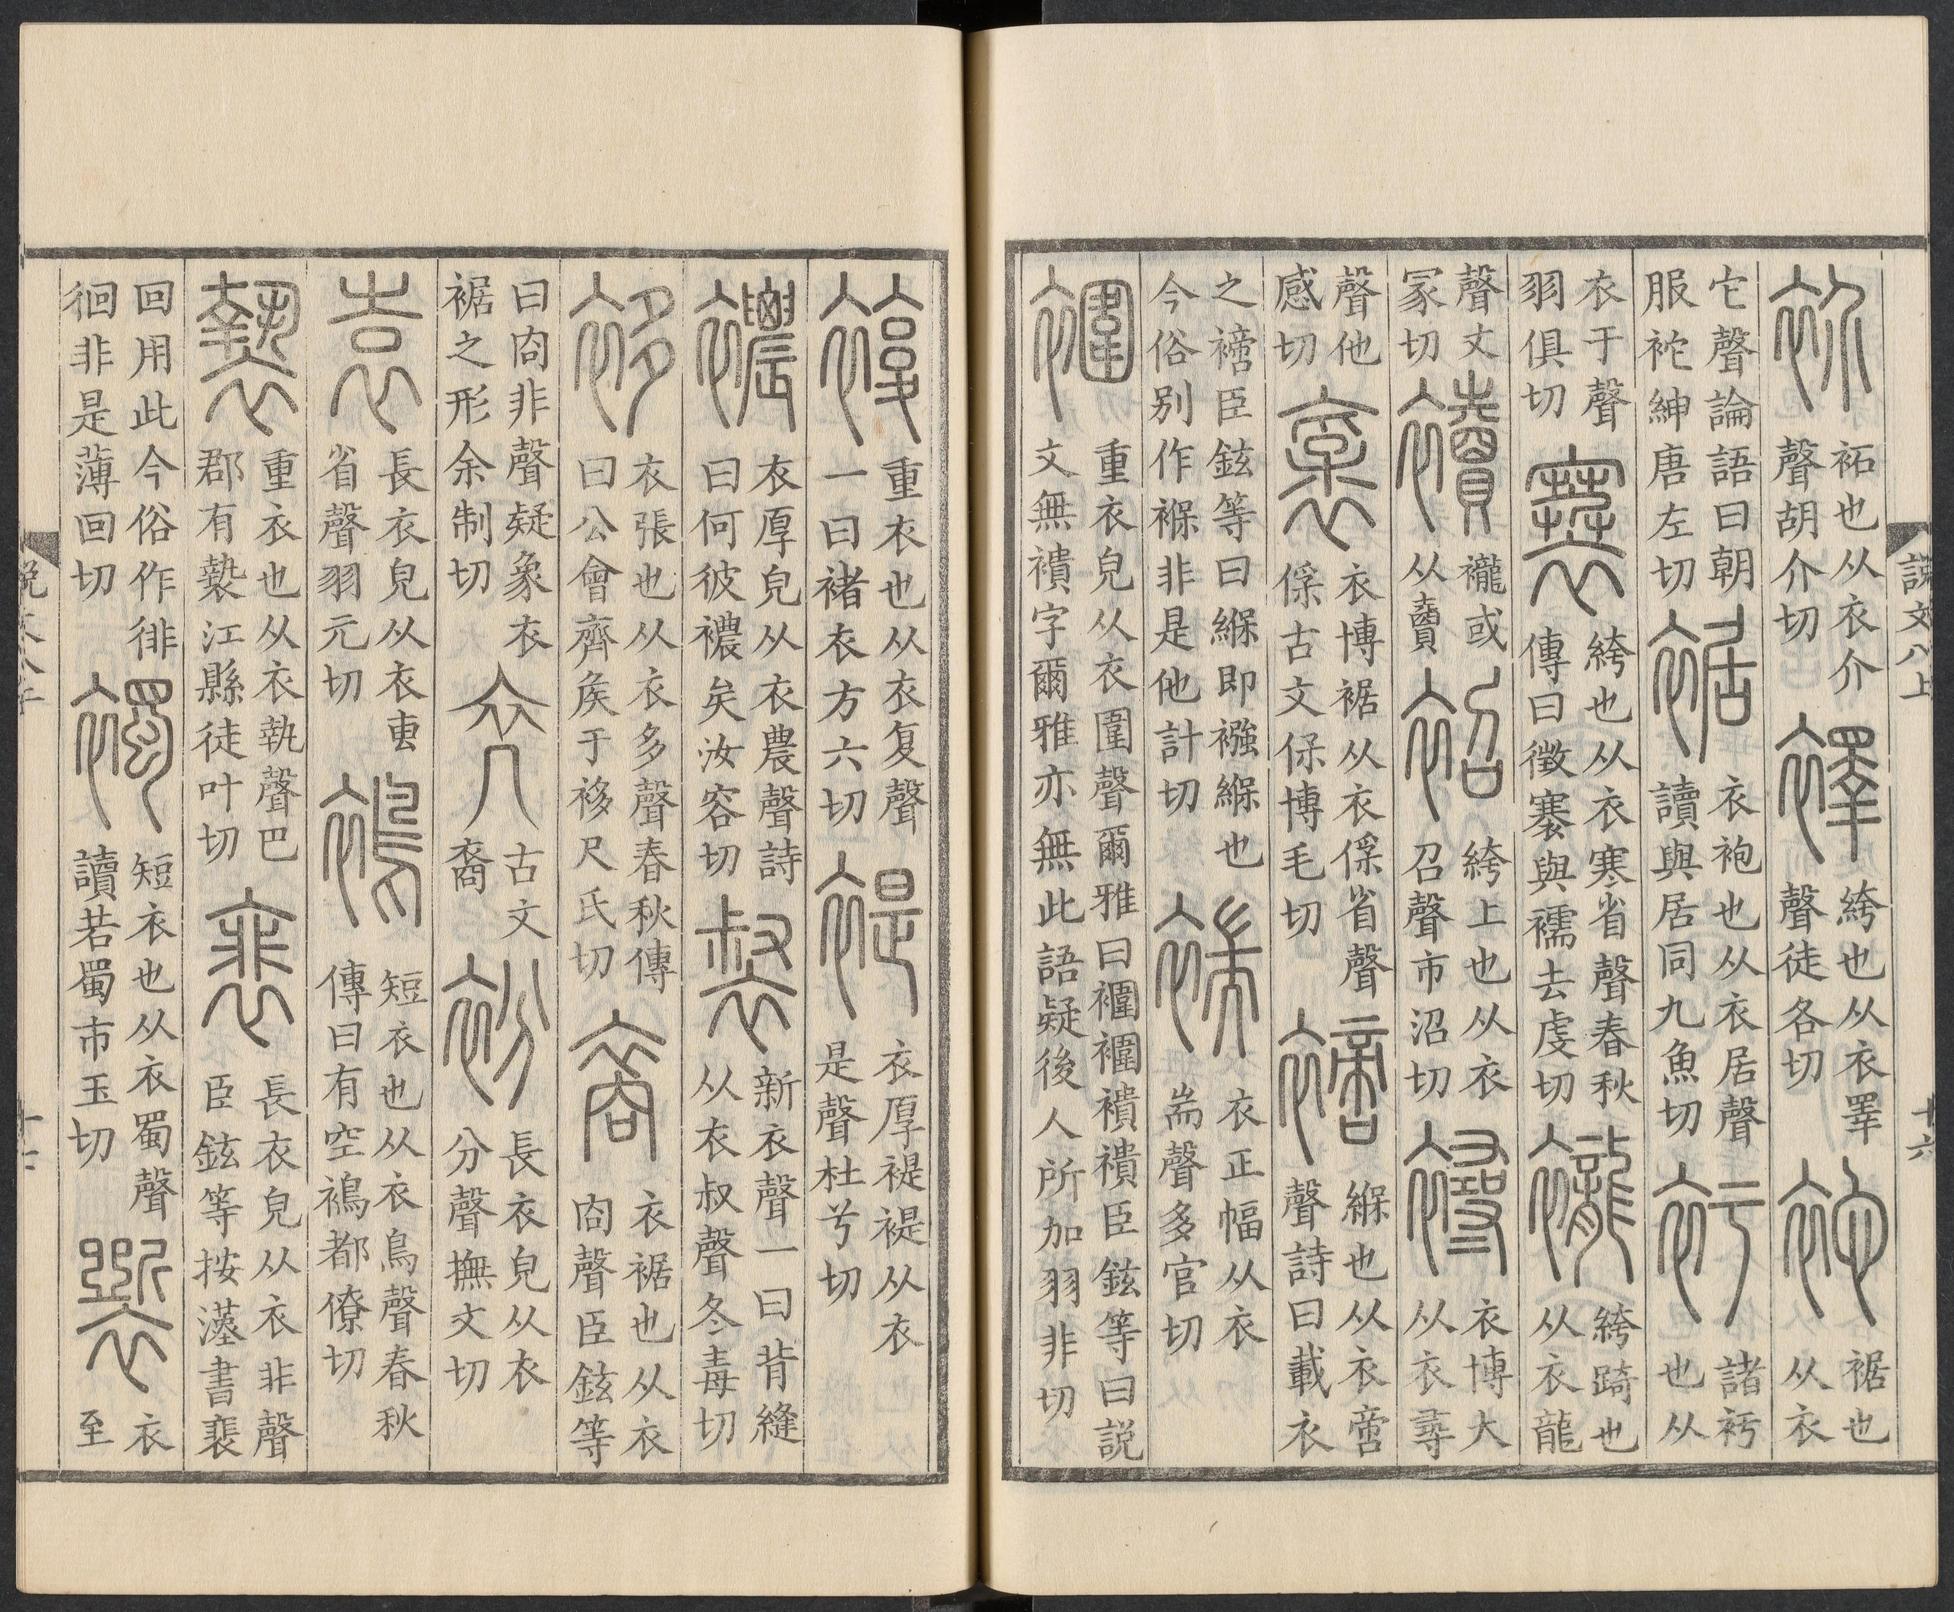 説文八上
十六
衸 袥也从衣介聲胡介切 襗 絝也从衣睪聲徒各切 袉 裾也从衣
它聲論語曰朝服袉紳唐左切 裾 衣袍也从衣居聲讀與居同九魚切 衧 諸衧也从
衣于聲羽俱切 褰 絝也从衣寒省聲春秋傳曰徵褰與襦去虔切 襱 絝踦也从衣龍
聲丈冢切 襩 襱或从賣 袑 絝上也从衣召聲市沼切 襑 衣博大从衣尋
聲他感切 褒 衣博裾从衣𠈃省聲𠈃古文保博毛切 䙗 緥也从衣啻聲詩曰載衣
之䙗臣鉉等曰緥即襁緥也今俗别作褓非是他計切 褍 衣正幅从衣耑聲多官切
䙟 重衣皃从衣圍聲爾雅曰䙟䙟襀襀臣鉉等曰説文無襀字爾雅亦無此語疑後人所加羽非切
複 重衣也从衣复聲一曰褚衣方六切 褆 衣厚褆褆从衣是聲杜兮切
襛 衣厚皃从衣農聲詩曰何彼襛矣汝容切 裻 新衣聲一曰背縫从衣叔聲冬毒切
袳 衣張也从衣多聲春秋傳曰公會齊矦于袳尺氏切 裔 衣裾也从衣㕯聲臣鉉等
曰㕯非聲疑象衣裾之形余制切 𠔽 古文裔 衯 長衣皃从衣分聲撫文切
袁 長衣皃从衣叀省聲羽元切 䙚 短衣也从衣鳥聲春秋傳曰有空䙚都僚切
褺 重衣也从衣執聲巴郡有褺江縣徒叶切 裵 長衣皃从衣非聲臣鉉等按漢書裵
回用此今俗作徘徊非是薄回切 襡 短衣也从衣蜀聲讀若蜀市玉切 䙠 衣至